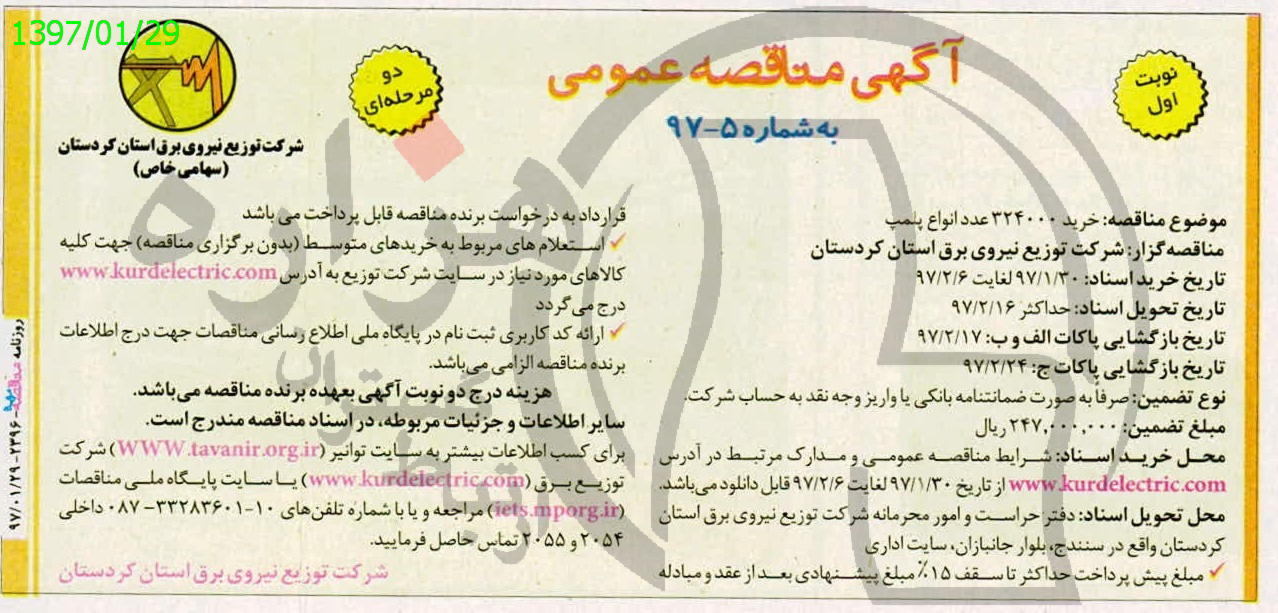 1397/01/29
نوبت
اول
آگهی مناقصه عمومی
به شماره ۵-۹۷
دو
مرحله‌ای
شرکت توزیع نیروی برق استان کردستان
(سهامی خاص)
موضوع مناقصه: خرید ۳۲۴۰۰۰ عدد انواع پلمپ
مناقصه گزار: شرکت توزیع نیروی برق استان کردستان
تاریخ خرید اسناد: ۹۷/۱/۳۰ لغایت ۹۷/۲/۶
تاریخ تحویل اسناد: حداکثر ۹۷/۲/۱۶
تاریخ بازگشایی پاکات الف و ب: ۹۷/۲/۱۷
تاریخ بازگشایی پاکات ج: ۹۷/۲/۲۴
نوع تضمین: صرفاً به صورت ضمانتنامه بانکی یا واریز وجه نقد به حساب شرکت.
مبلغ تضمین: ۲۴۷,۰۰۰,۰۰۰ ریال
محل خرید اسناد: شرایط مناقصه عمومی و مدارک مرتبط در آدرس
www.kurdelectric.com از تاریخ ۹۷/۱/۳۰ لغایت ۹۷/۲/۶ قابل دانلود می‌باشد.
محل تحویل اسناد: دفتر حراست و امور محرمانه شرکت توزیع نیروی برق استان
کردستان واقع در سنندج، بلوار جانبازان، سایت اداری
✓ مبلغ پیش پرداخت حداکثر تا سقف ۱۵٪ مبلغ پیشنهادی بعد از عقد و مبادله
قرارداد به درخواست برنده مناقصه قابل پرداخت می باشد
✓ استعلام های مربوط به خریدهای متوسط (بدون برگزاری مناقصه) جهت کلیه
کالاهای مورد نیاز در سایت شرکت توزیع به آدرس www.kurdelectric.com
درج می گردد
✓ ارائه کد کاربری ثبت نام در پایگاه ملی اطلاع رسانی مناقصات جهت درج اطلاعات
برنده مناقصه الزامی می‌باشد.
هزینه درج دو نوبت آگهی بعهده برنده مناقصه می‌باشد.
سایر اطلاعات و جزئیات مربوطه، در اسناد مناقصه مندرج است.
برای کسب اطلاعات بیشتر به سایت توانیر (WWW.tavanir.org.ir) شرکت
توزیع برق (www.kurdelectric.com) یا سایت پایگاه ملی مناقصات
(iets.mporg.ir) مراجعه و یا با شماره تلفن‌های ۱۰-۳۳۲۸۳۶۰۱-۰۸۷ داخلی
۲۰۵۴ و ۲۰۵۵ تماس حاصل فرمایید.
شرکت توزیع نیروی برق استان کردستان
روزنامه مناقصه - ۲۳۹۶ - ۹۷/۰۱/۲۹
هزاره